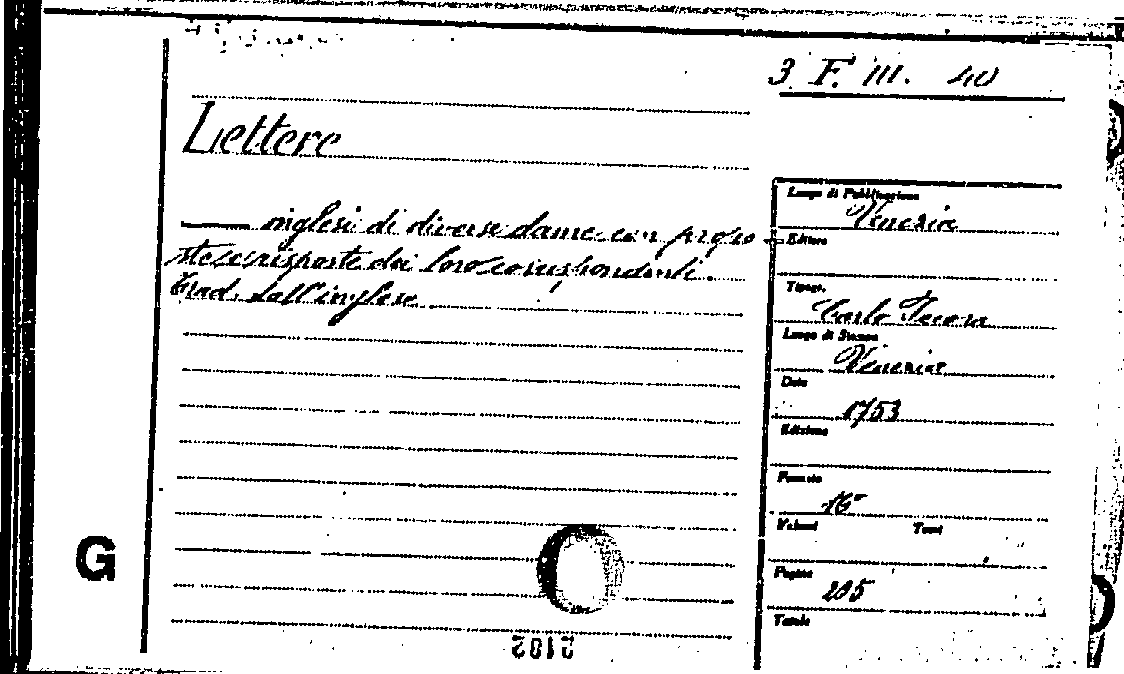 3 F. III. 40
Lettere
—— inglesi di diverse dame con propo
ste e risposte dei loro corrispondenti.
Trad. dall'inglese
Luogo di Pubblicazione
Venezia
Editore
Tipogr.
Carlo Pecora
Luogo di Stampa
Venezia
Data
1753
Edizione
Formato
16°
Volumi Tomi
Pagine
205
Tavole
G
2102